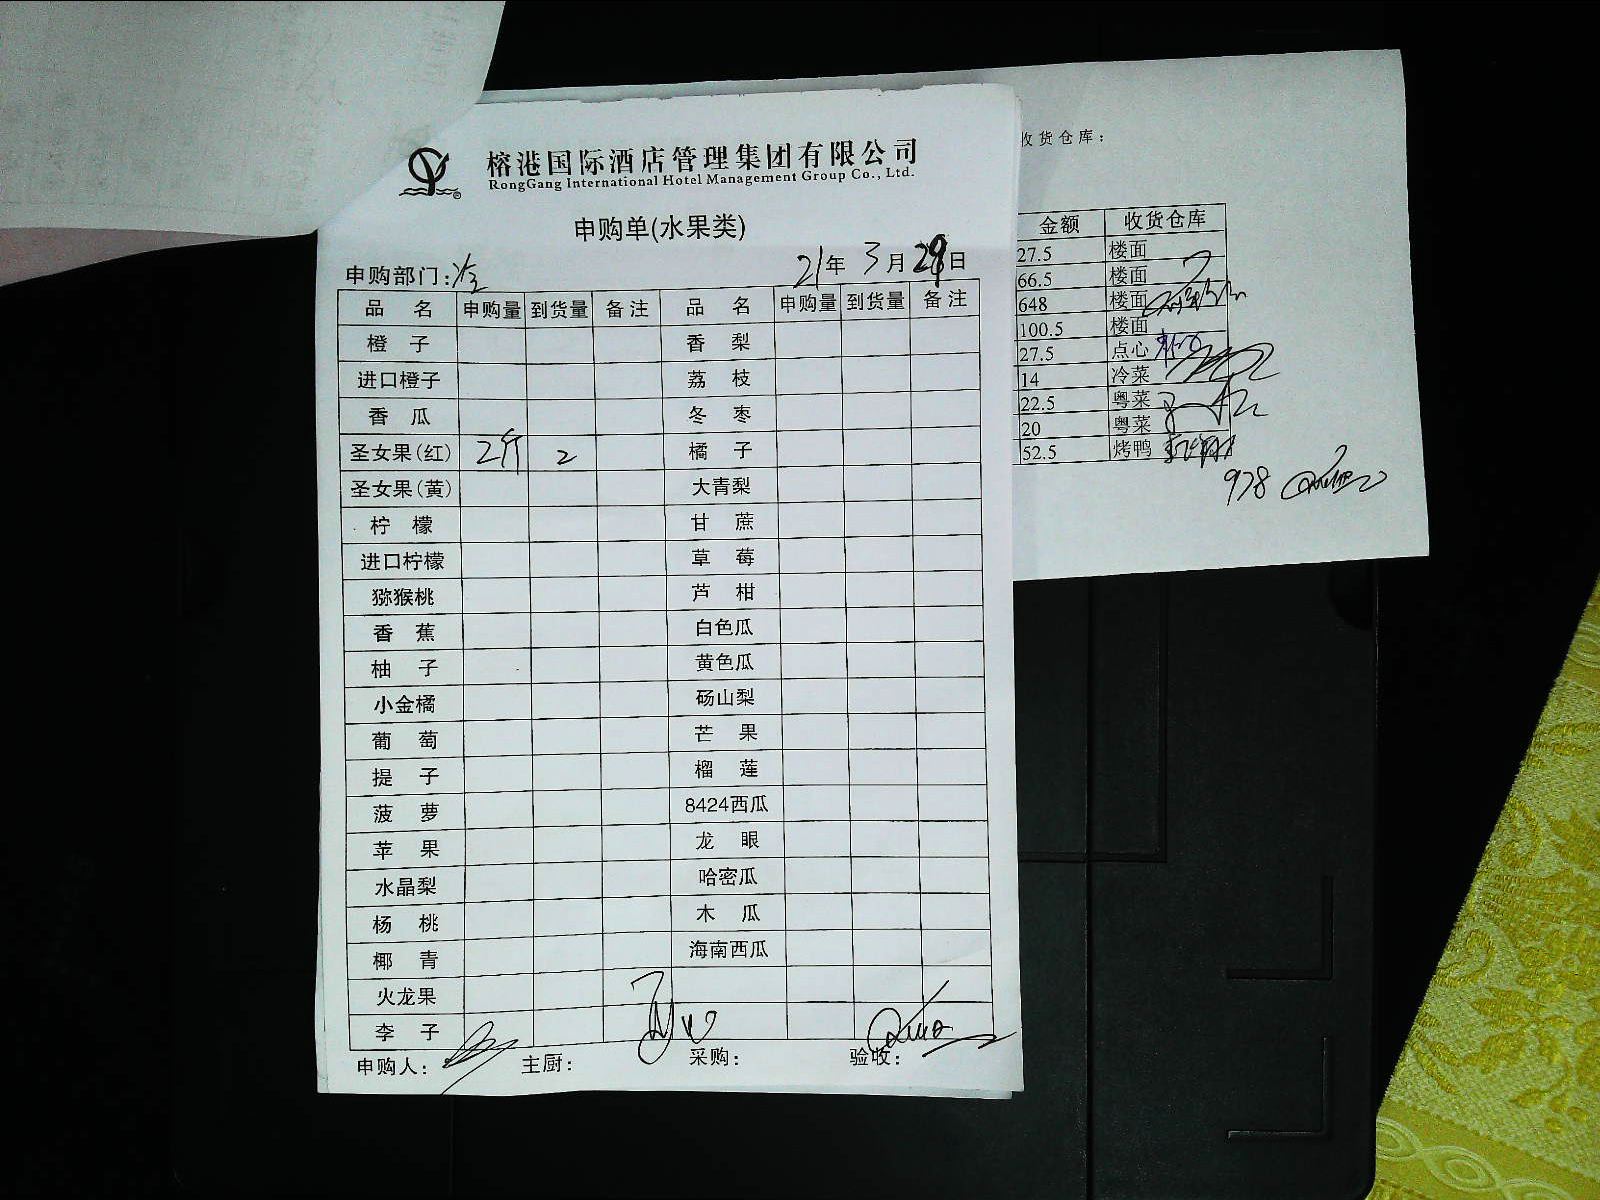 榕港国际酒店管理集团有限公司
RongGang International Hotel Management Group Co., Ltd.
申购单(水果类)
申购部门: 21年 3月 29日
品 名 申购量 到货量 备注 品 名 申购量 到货量 备注
橙 子 香 梨
进口橙子 荔 枝
香 瓜 冬 枣
圣女果(红) 2斤 2 橘 子
圣女果(黄) 大青梨
柠 檬 甘 蔗
进口柠檬 草 莓
猕猴桃 芦 柑
香 蕉 白色瓜
柚 子 黄色瓜
小金橘 砀山梨
葡 萄 芒 果
提 子 榴 莲
菠 萝 8424西瓜
苹 果 龙 眼
水晶梨 哈密瓜
杨 桃 木 瓜
椰 青 海南西瓜
火龙果
李 子
申购人: 主厨: 采购: 验收:
收货仓库:
金额 收货仓库
27.5 楼面
66.5 楼面
648 楼面
100.5 楼面
27.5 点心
14 冷菜
22.5 粤菜
20 粤菜
52.5 烤鸭
978